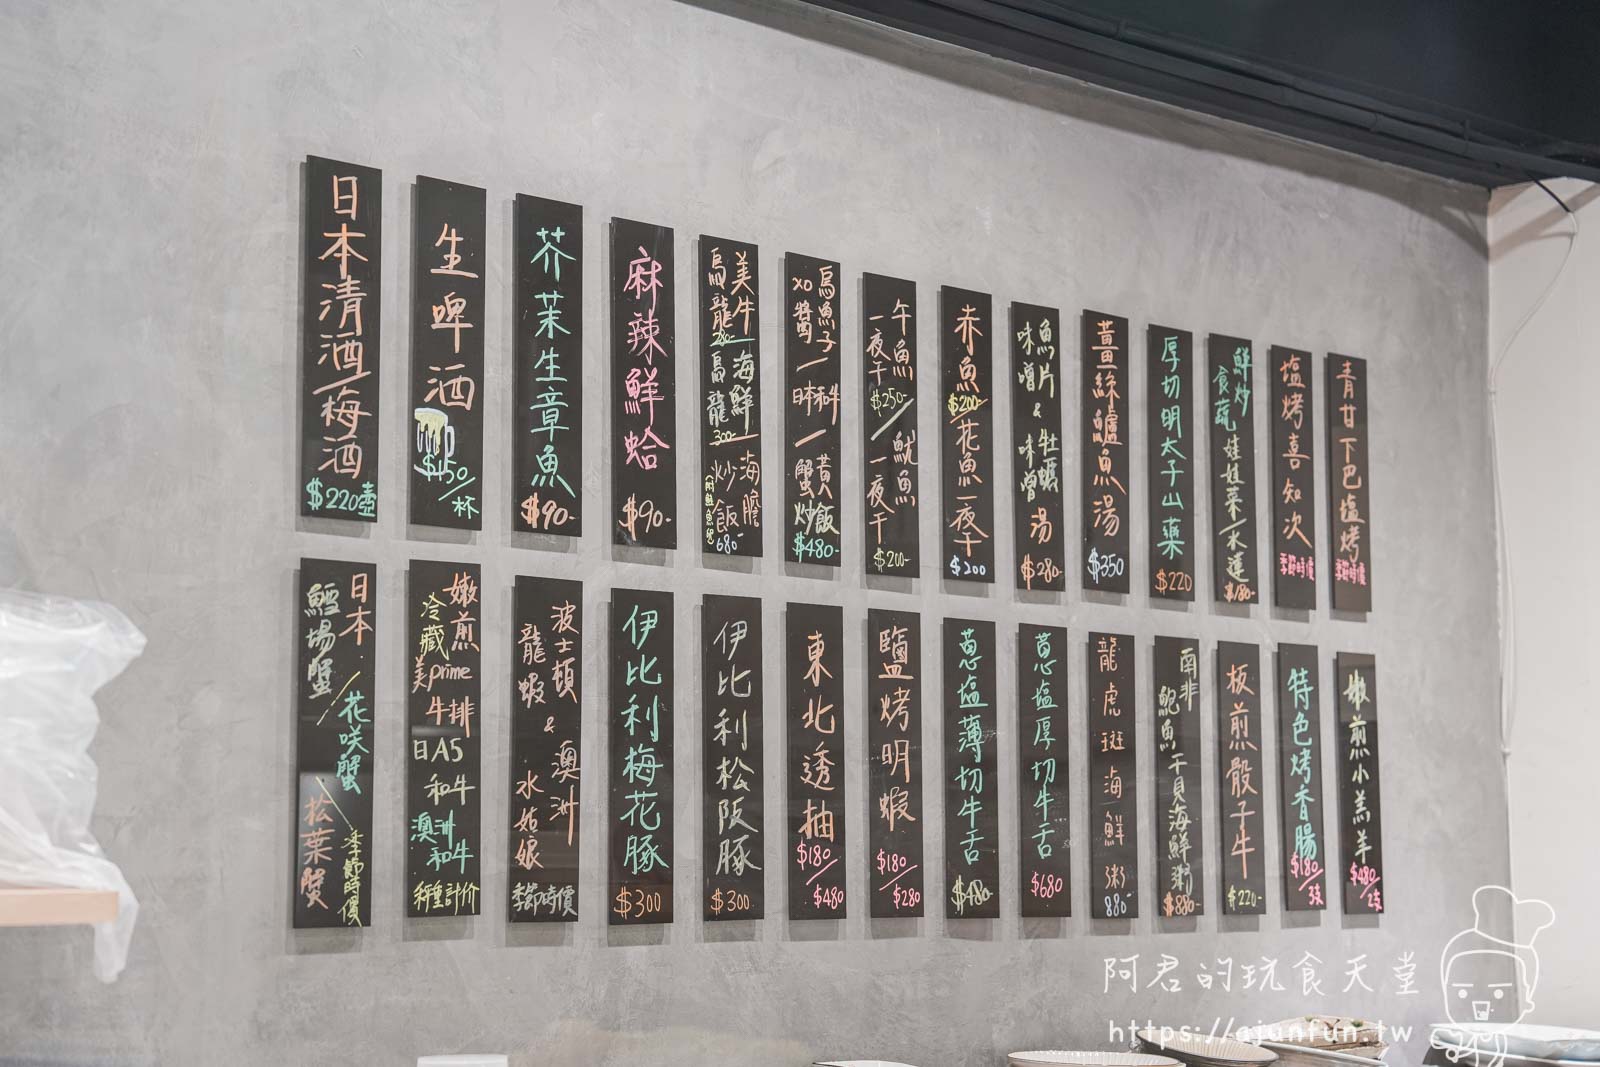 日本清酒/梅酒
$220壺
生啤酒
$150/杯
芥茉生章魚
$90-
麻辣鮮蛤
$90-
美牛烏龍
280-
海鮮烏龍
300-
海膽炒飯
680-
烏魚子/日本和牛/蟹黃炒飯
XO醬
$480-
午魚一夜干
$250-
魷魚一夜干
$200-
赤魚
$200-
花魚一夜干
$200
魚片味噌&牡蠣味噌湯
$280-
薑絲鱸魚湯
$350
厚切明太子山藥
$220
鮮炒食蔬娃娃菜/水蓮
$180-
塩烤喜知次
季節時價
青甘下巴塩烤
季節時價
日本鱈場蟹/花咲蟹\松葉蟹
季節時價
嫩煎冷藏美prime牛排
日A5和牛
澳洲和牛
秤重計价
波士頓龍蝦&澳洲水姑娘
季節時價
伊比利梅花豚
$300
伊比利松阪豚
$300
東北透抽
$180/$480
鹽烤明蝦
$180/$280
蔥塩薄切牛舌
$480-
蔥塩厚切牛舌
$680
龍虎斑海鮮粥
880-
南非鮑魚干貝海鮮粥
$880-
板煎骰子牛
$220-
特色烤香腸
$180/3支
嫩煎小羔羊
$480/2支
阿君的玩食天堂
https://ajunfun.tw